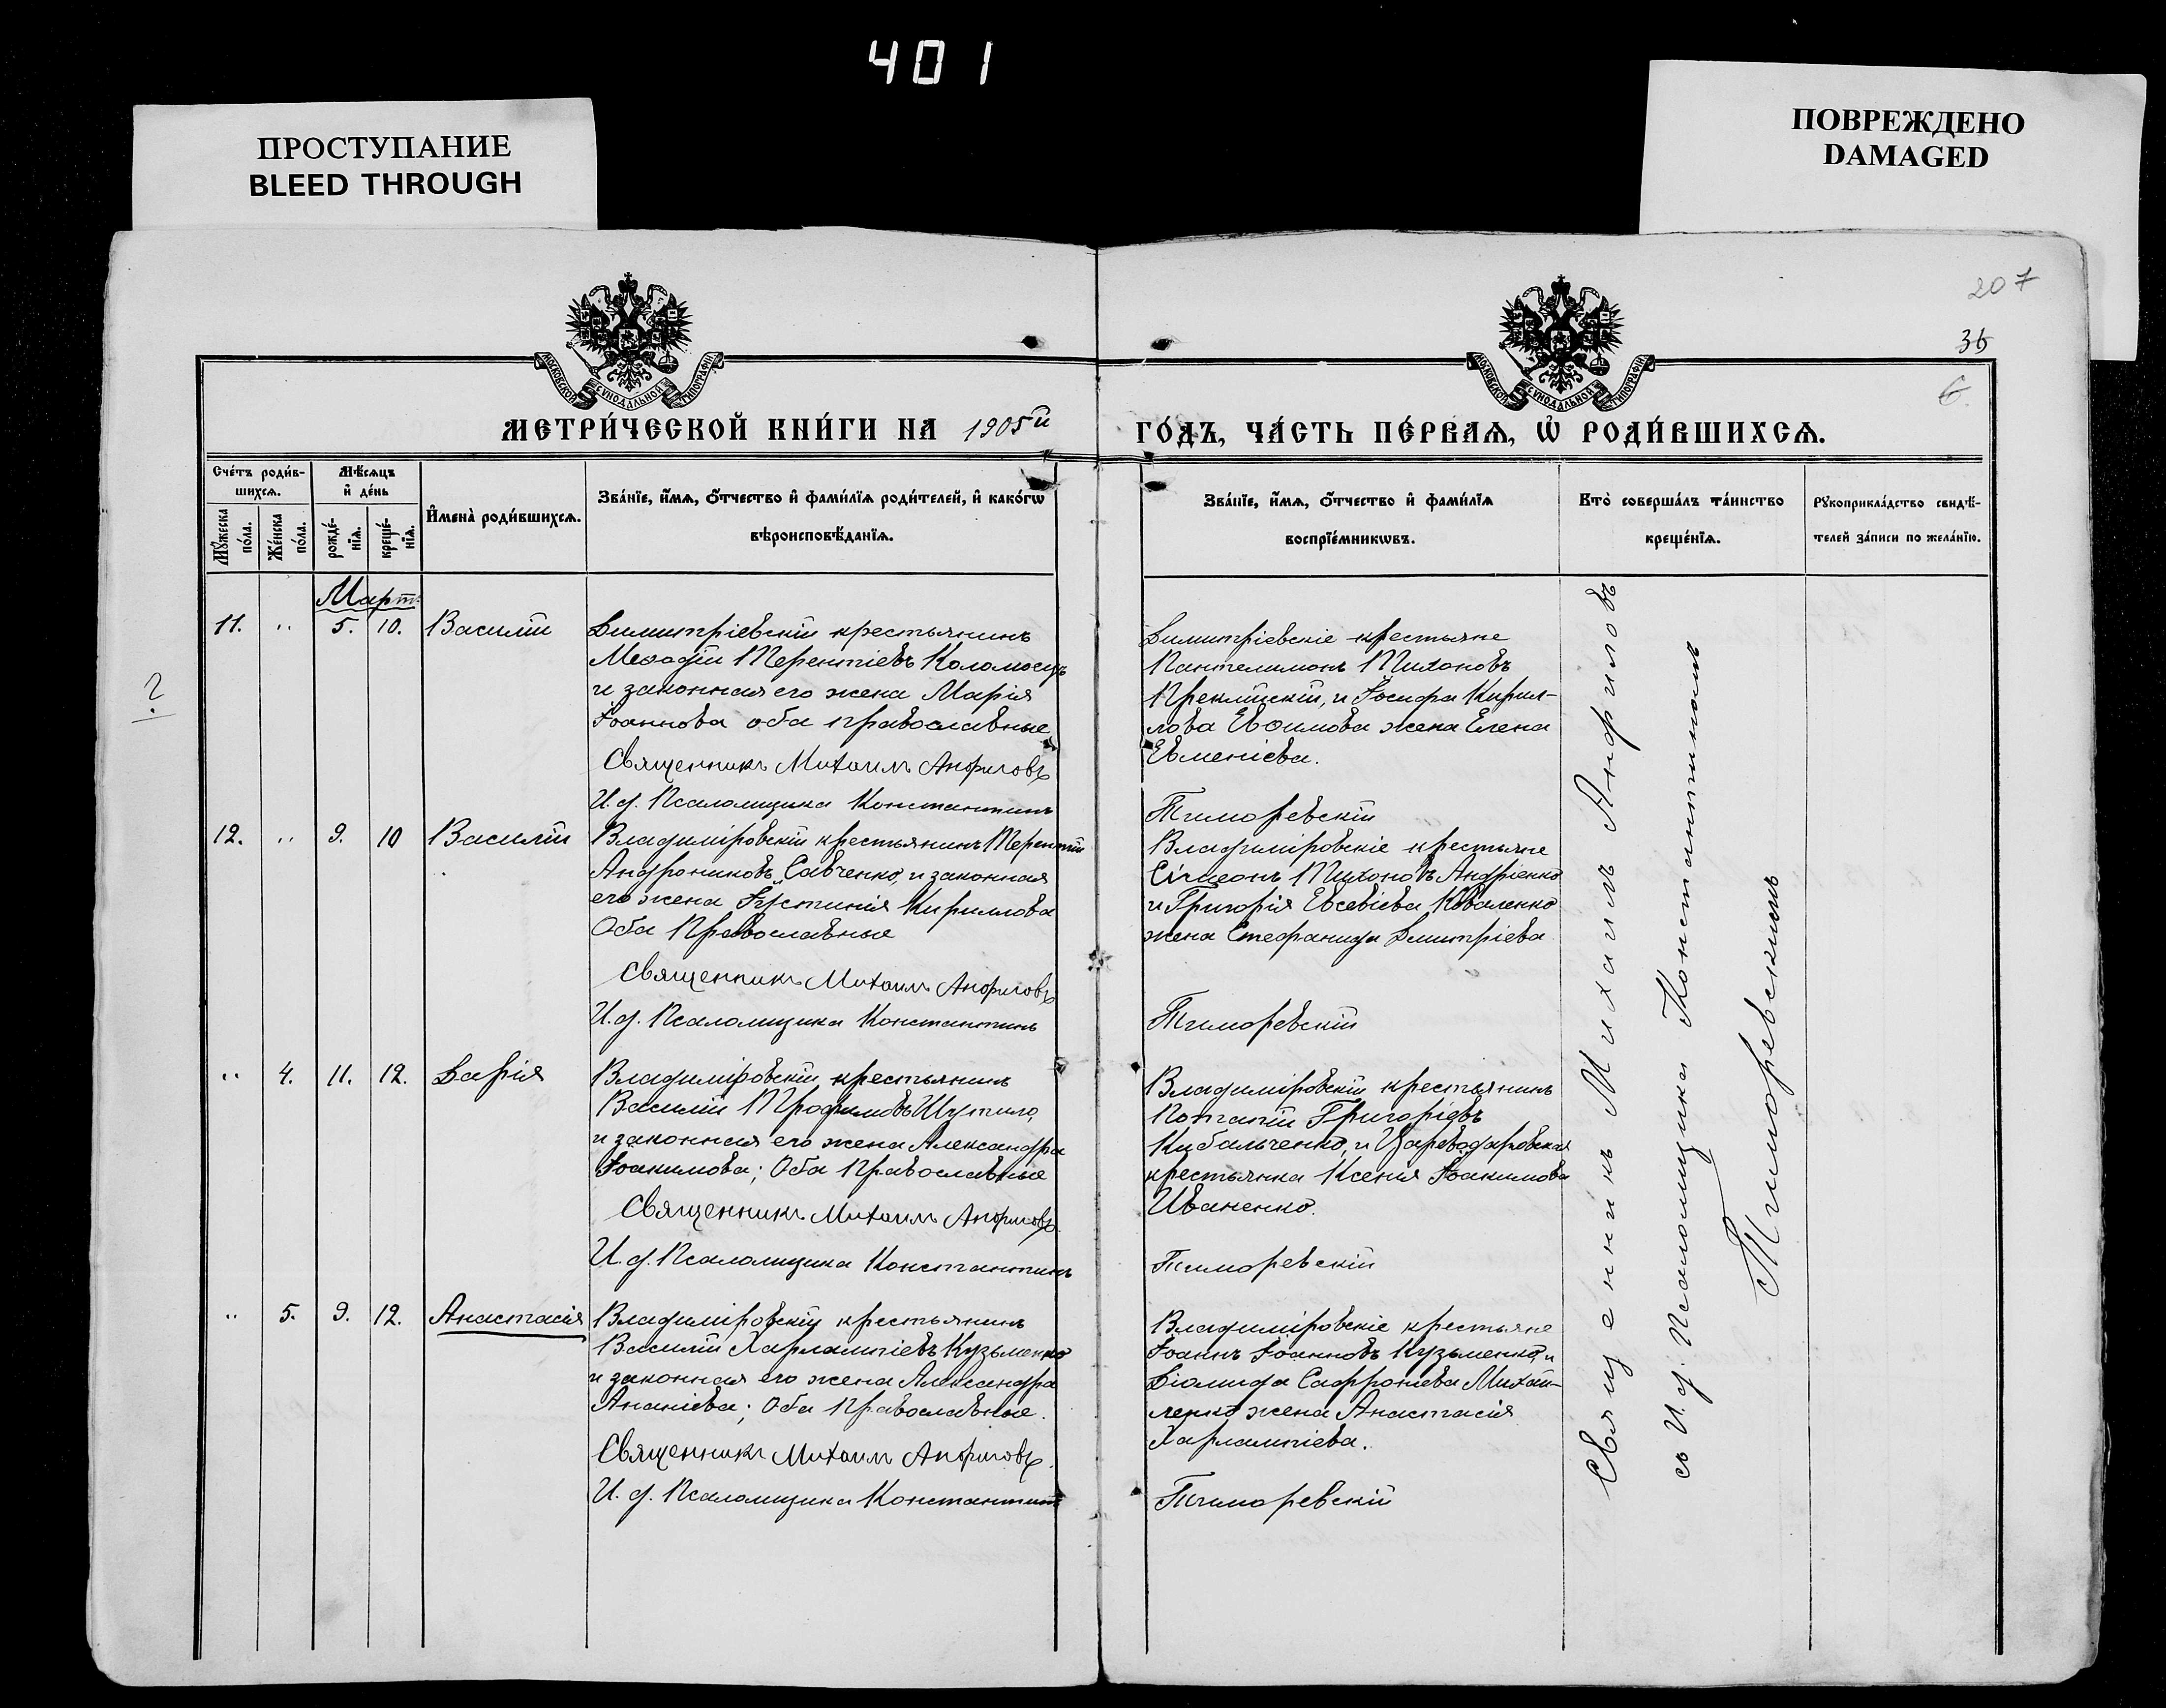 401
ПРОСТУПАНИЕ
BLEED THROUGH
ПОВРЕЖДЕНО
DAMAGED
207
36
6.
МОСКОВСКОЙ СУНОДАЛЬНОЙ ТИПОГРАФІИ
МОСКОВСКОЙ СУНОДАЛЬНОЙ ТИПОГРАФІИ
МЕТРИ́ЧЕСКОЙ КНИ́ГИ НА 1905й ГО́ДЪ, ЧА́СТЬ ПЕ́РВАѦ, Ѡ҆ РОДИ́ВШИХСѦ.
Сче́тъ роди́в-
шихсѧ.
Мѣ́сѧцъ
и҆ де́нь
Мꙋ́жеска
по́ла.
Же́нска
по́ла.
рожде́-
нїѧ.
креще́-
нїѧ.
И҆мена̀ роди́вшихсѧ.
Зва́нїе, и҆́мѧ, ѻ҆́тчество и҆ фами́лїѧ роди́телей, и҆ како́гѡ
вѣроисповѣ́данїѧ.
Зва́нїе, и҆́мѧ, ѻ҆́тчество и҆ фами́лїѧ
воспрїе́мникѡвъ.
Кто̀ соверша́лъ та́инство
креще́нїѧ.
Рꙋкоприкла́дство свидѣ́-
телей за́писи по жела́нїю.
Март.
?
11. " 5. 10. Василій
Димитріевскій крестьянинъ
Меѳодій Терентіевъ Коломоецъ
и законная его жена Марія
Іоаннова оба православные
Священникъ Михаилъ Анфиловъ
И. д. Псаломщика Константинъ
Димитріевскіе крестьяне
Пантелимонъ Тихоновъ
Преклійскій, и Іосифа Кирил-
лова Евѳимова жена Елена
Евменіева.
Тиморевскій
12. " 9. 10 Василій
Владиміровскій крестьянинъ Терентій
Андрониковъ Савченко, и законная
его жена Іустинія Кириллова
Оба Православные
Священникъ Михаилъ Анфиловъ
И. д. Псаломщика Константинъ
Владиміровскіе крестьяне
Сімеонъ Тихоновъ Андріенко
и Григорія Евсевіева Коваленко
жена Стефанида Дмитріева
Тиморевскій
" 4. 11. 12. Дарія
Владиміровскій крестьянинъ
Василій Трофимовъ Шутило,
и законная его жена Александра
Іоакимова; Оба Православные
Священникъ Михаилъ Анфиловъ.
И. д. Псаломщика Константинъ
Владиміровскій крестьянинъ
Потапій Григоріевъ
Кибальченко, и Цареводаровская
крестьянка Ксенія Іоакимова
Иваненко.
Тиморевскій
" 5. 9. 12. Анастасія
Владиміровскій крестьянинъ
Василій Харлампіевъ Кузьменко
и законная его жена Александра
Ананіева; Оба Православные.
Священникъ Михаилъ Анфиловъ.
И. д. Псаломщика Константинъ
Владиміровскіе крестьяне
Іоаннъ Іоанновъ Кузьменко, и
Діомида Сафроніева Михай-
ленко жена Анастасія
Харлампіева.
Тиморевскій
Священникъ Михаилъ Анфиловъ
съ И. д. Псаломщика Константиномъ
Тиморевскимъ